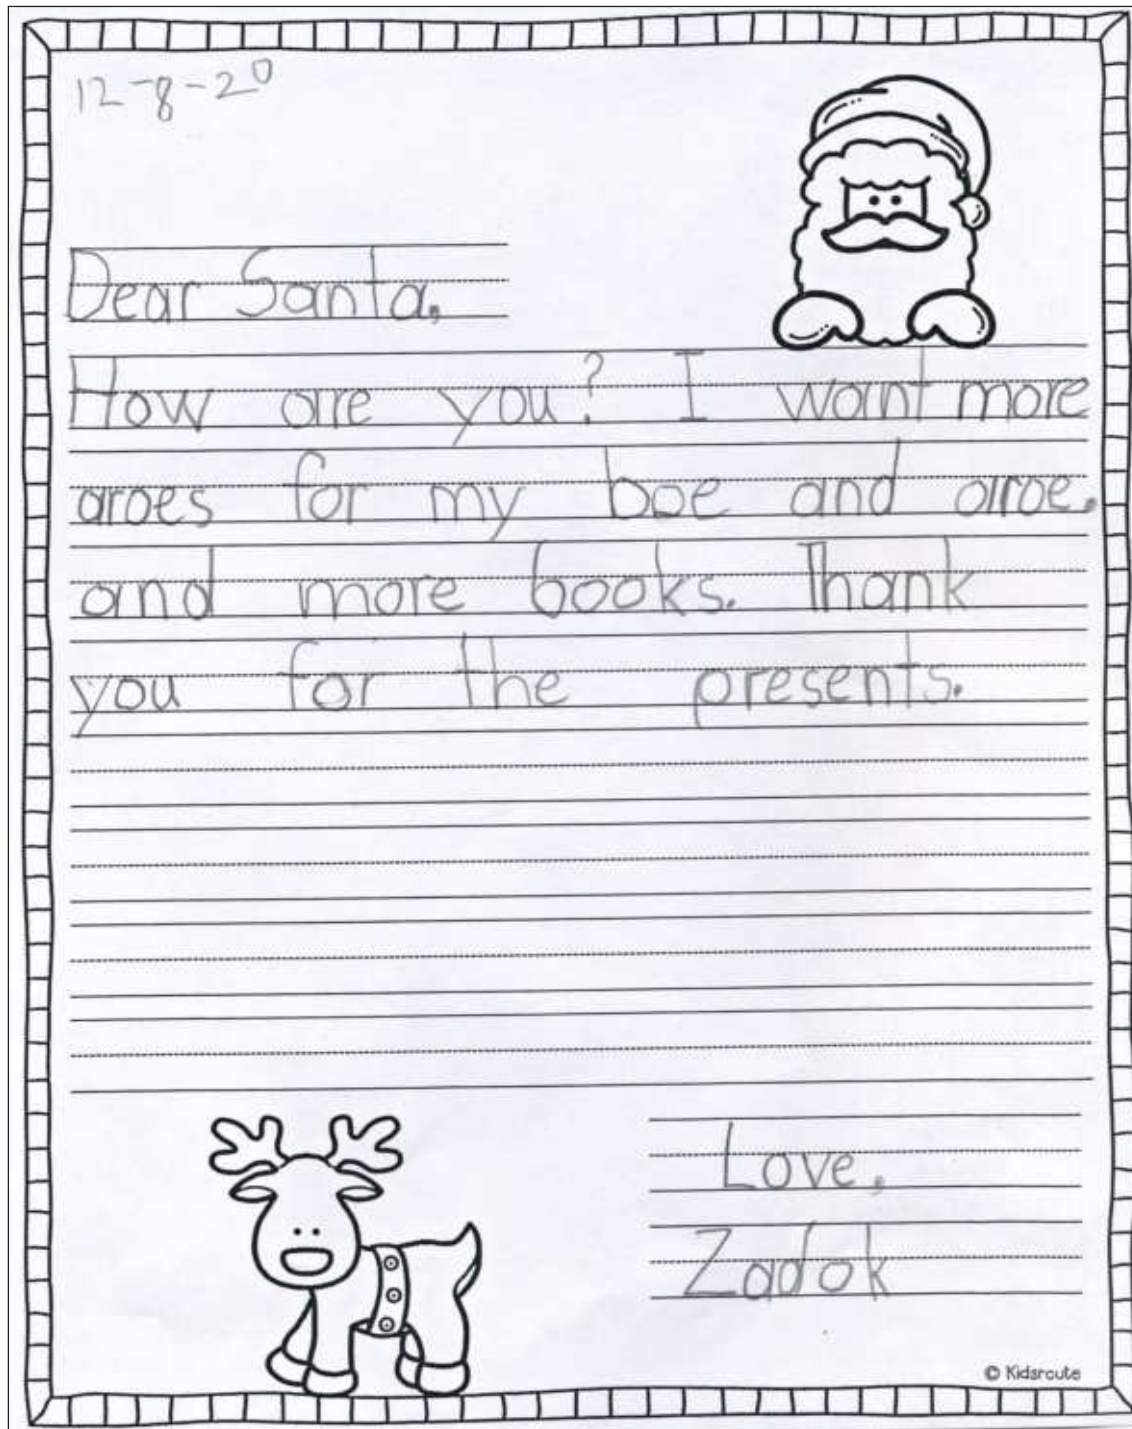 12-8-20
Dear Santa,
How are you? I want more
aroes for my boe and aroe.
and more books. Thank
you for the presents.
Love,
Zadok
© Kidsroute